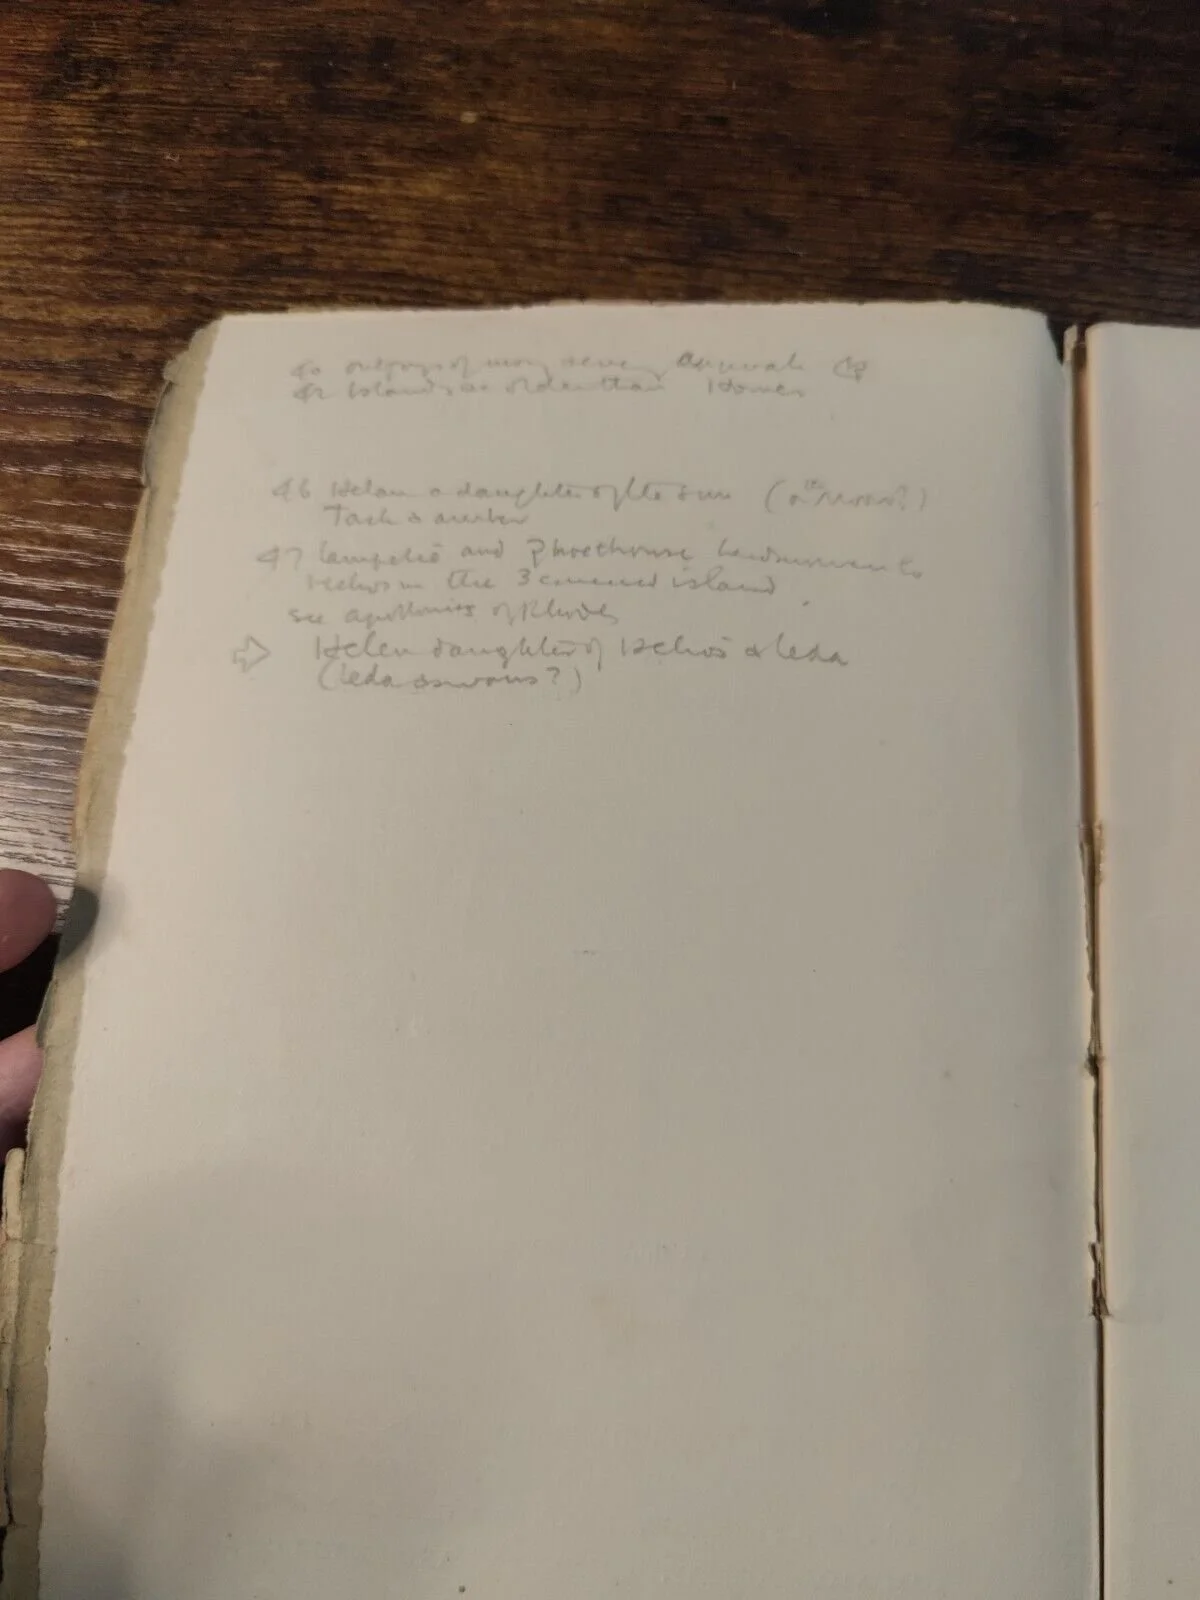 40 outposts of many
42 Islands as older than Homer
46 Helen a daughter of the sun (or moon?)
Task
47 Lampetië and Phaethousa herdswomen to
Helios in the 3 cornered island
see Apollonius of Rhodes
Helen daughter of Helios & Leda
(Leda as swans?)